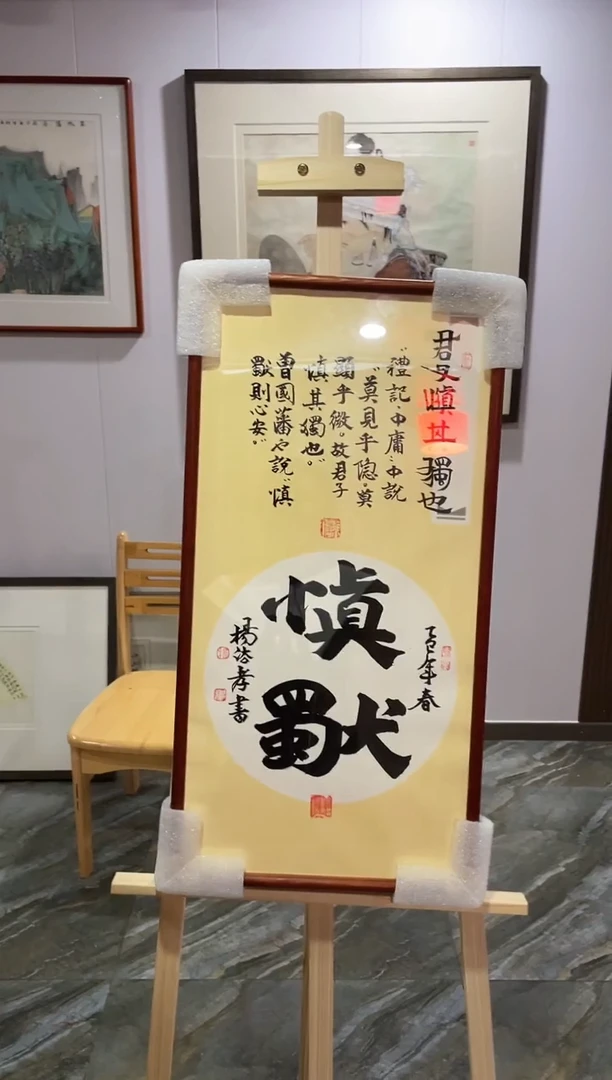 君慎其獨也
"禮記·中庸"中說
"莫見乎隐。莫
顯乎微。故君子
慎其獨也。"
曾國藩也說"慎
獨則心安。"
乙巳年春
慎獨
楊孝書